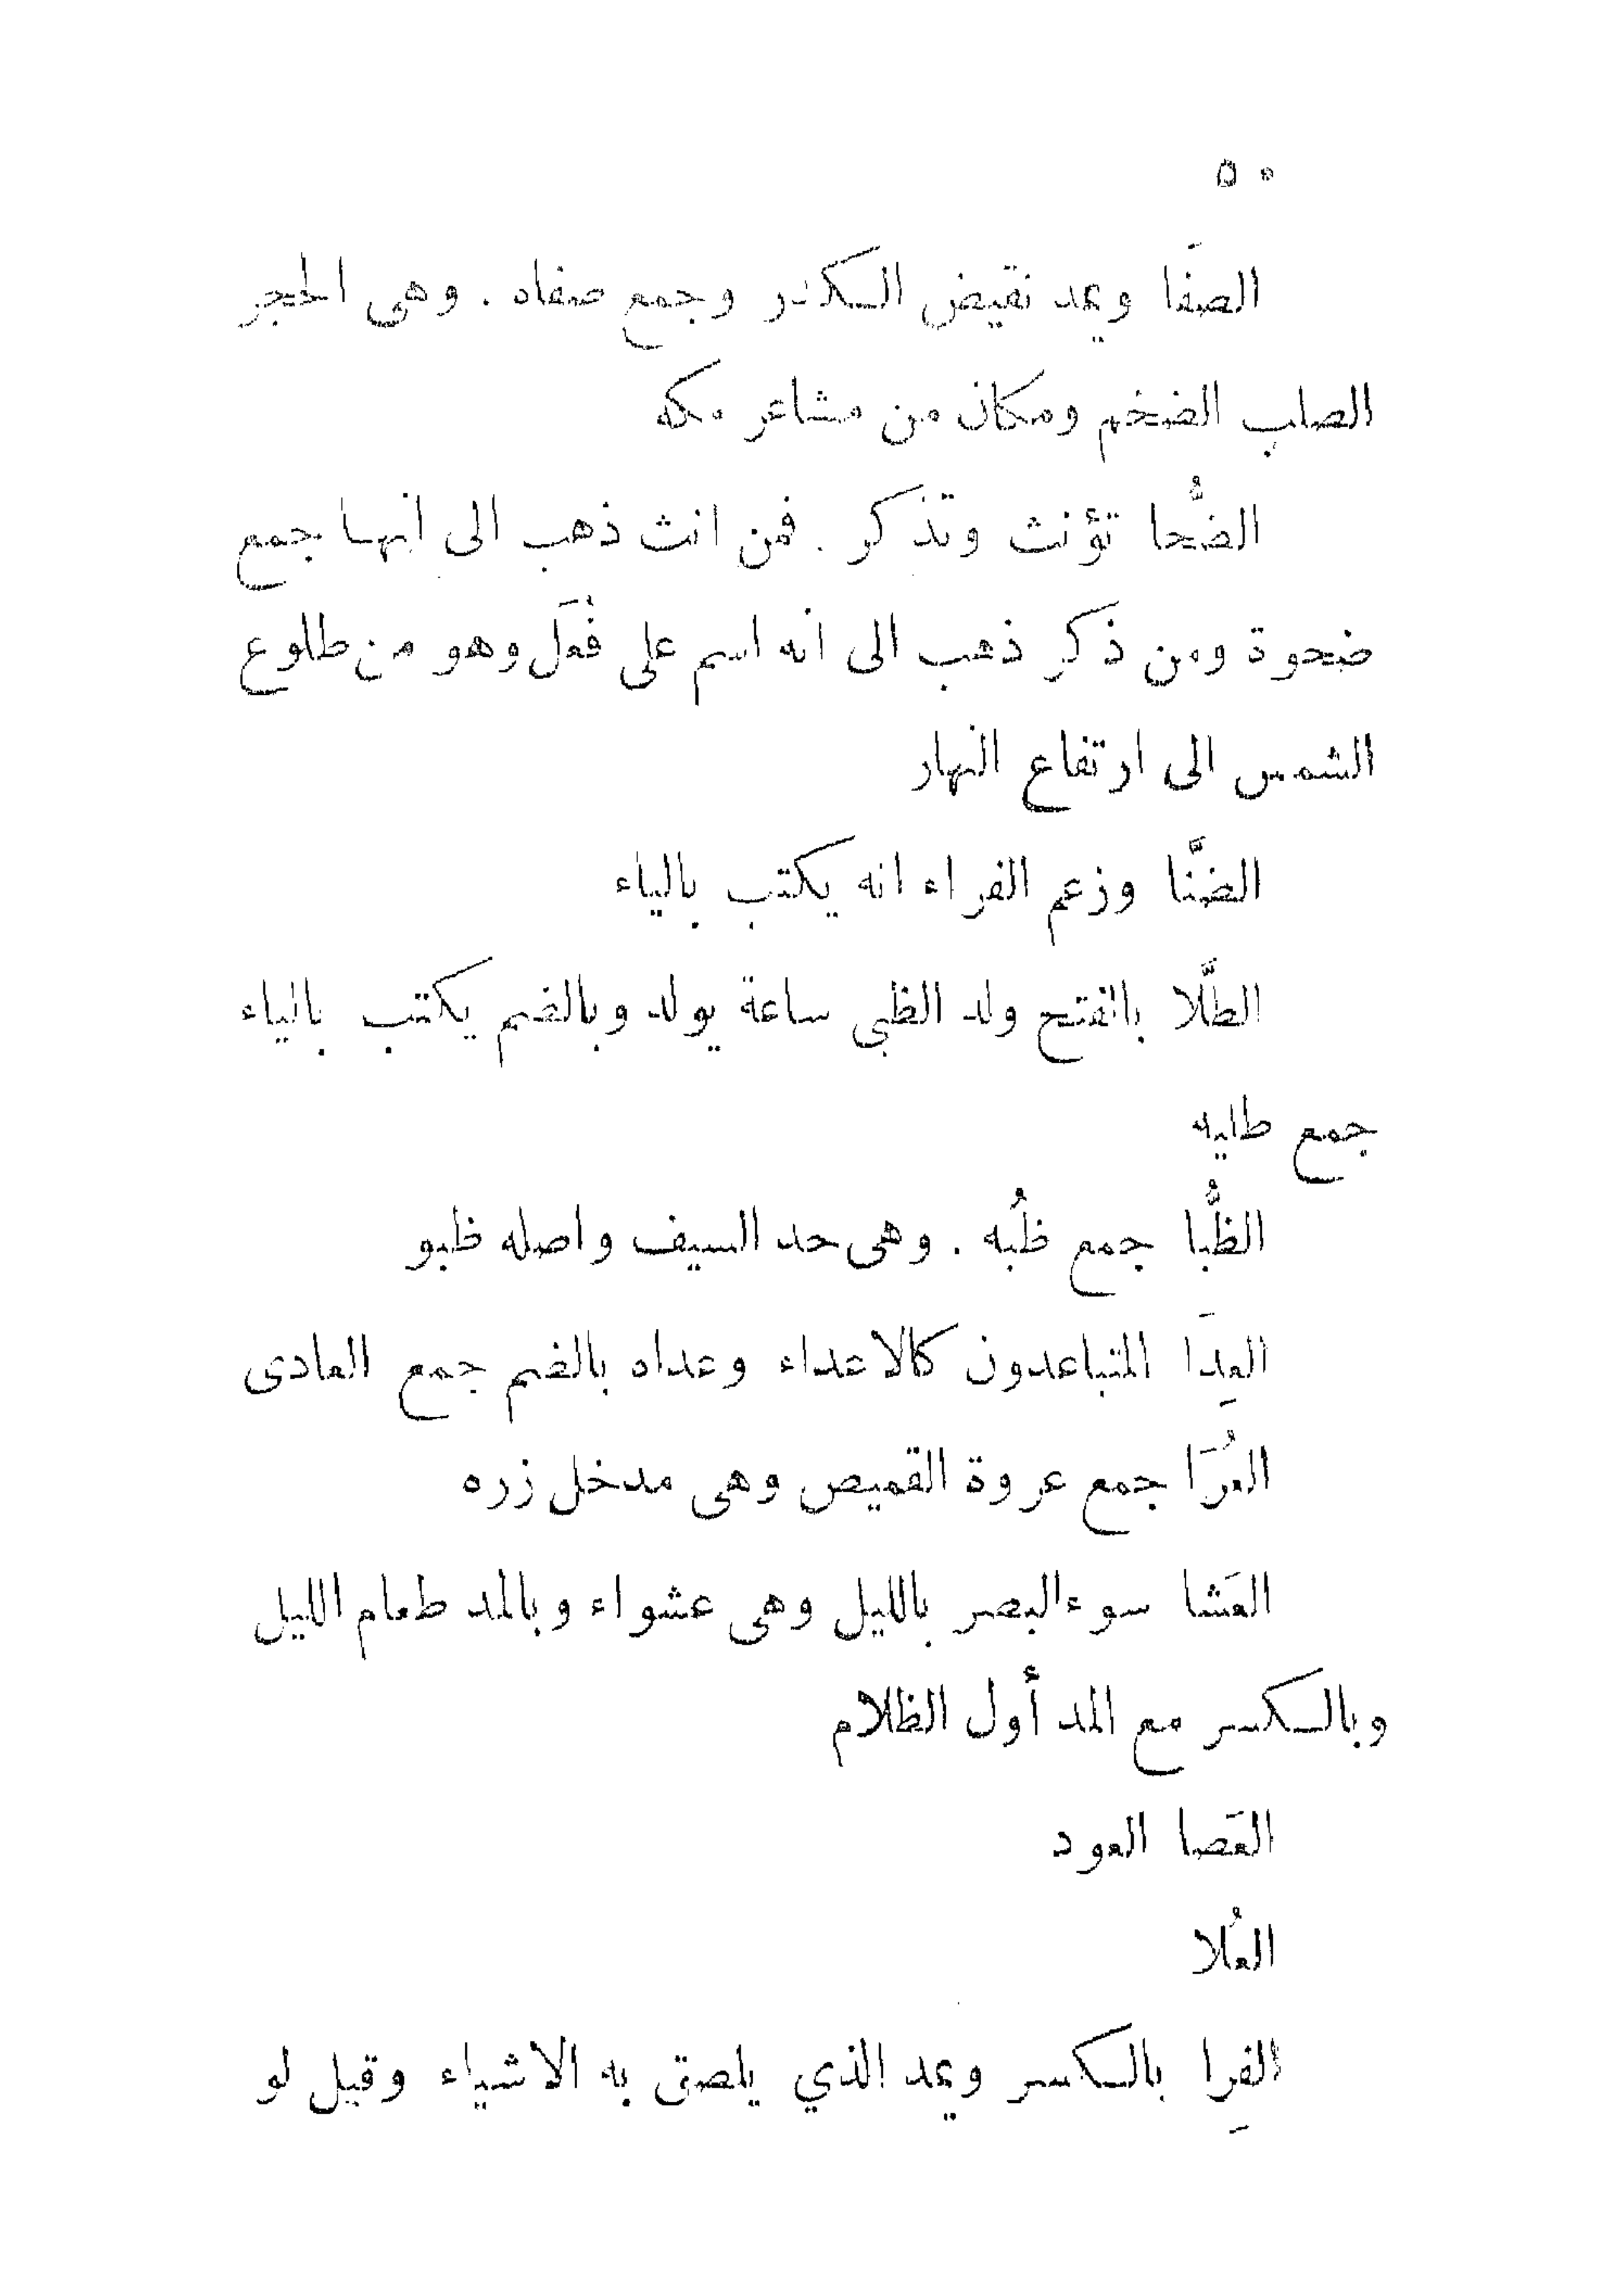 ٥٠
الصفَا ويمد نقيض الكدر وجمع صفاه . وهى الحجر
الصلب الضخم ومكان من مشاعر مكه
الضُّحا تؤنث وتذكر . فمن انث ذهب الى انها جمع
ضحوة ومن ذكر ذهب الى انه اسم على فُعَل وهو من طلوع
الشمس الى ارتفاع النهار
الضَّنا وزعم الفراء انه يكتب بالياء
الطَّلا بالفتح ولد الظبى ساعة يولد وبالضم يكتب بالياء
جمع طليه
الظُّبا جمع ظُبه . وهى حد السيف واصله ظبو
العِدَا المتباعدون كالاعداء وعداه بالضم جمع العادى
العُرَا جمع عروة القميص وهى مدخل زره
العَشا سوء البصر بالليل وهى عشواء وبالمد طعام الليل
وبالكسر مع المد أول الظلام
العَصا العود
العُلا
الفِرا بالكسر ويمد الذي يلصق به الاشياء وقيل لو